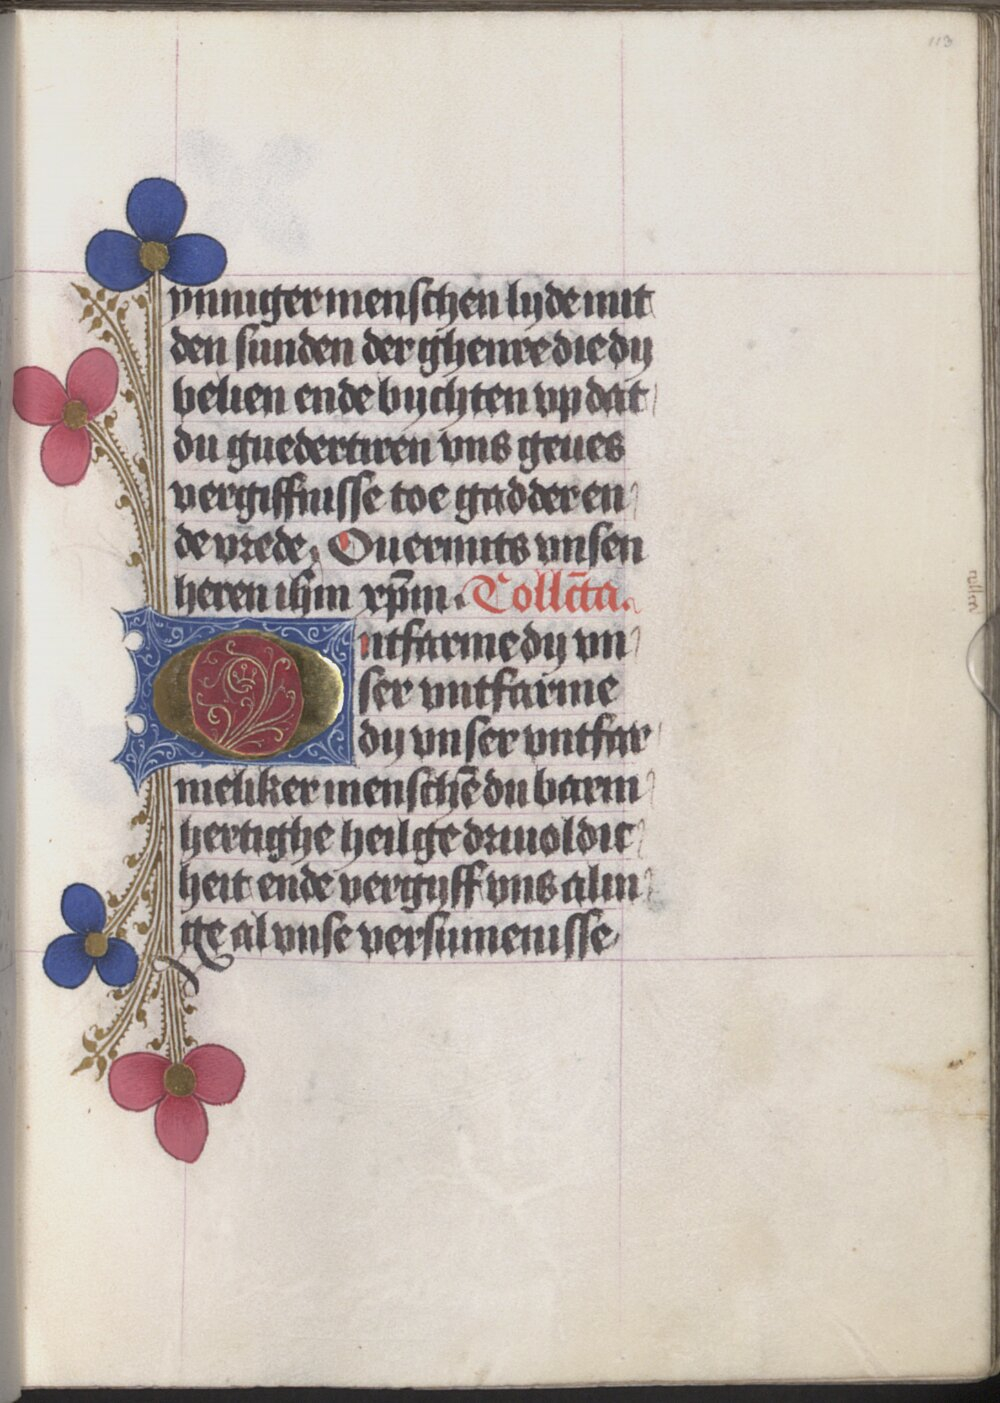 113
ynniger menschen lyde mit
den sunden der ghenre die dy
velien ende bychten vp dat
du guedertiren vns geues
vergiffnisse toe gadder en
de vrede. Ouermits vnsen
heren ihm xpm. Collcta.
Ontfarme dy vn
ser vntfarme
dy vnser vntfar
meliker mensche du barm
hertighe heilge driuoldic
heit ende vergyff vns alin
ge al vnse versumenisse